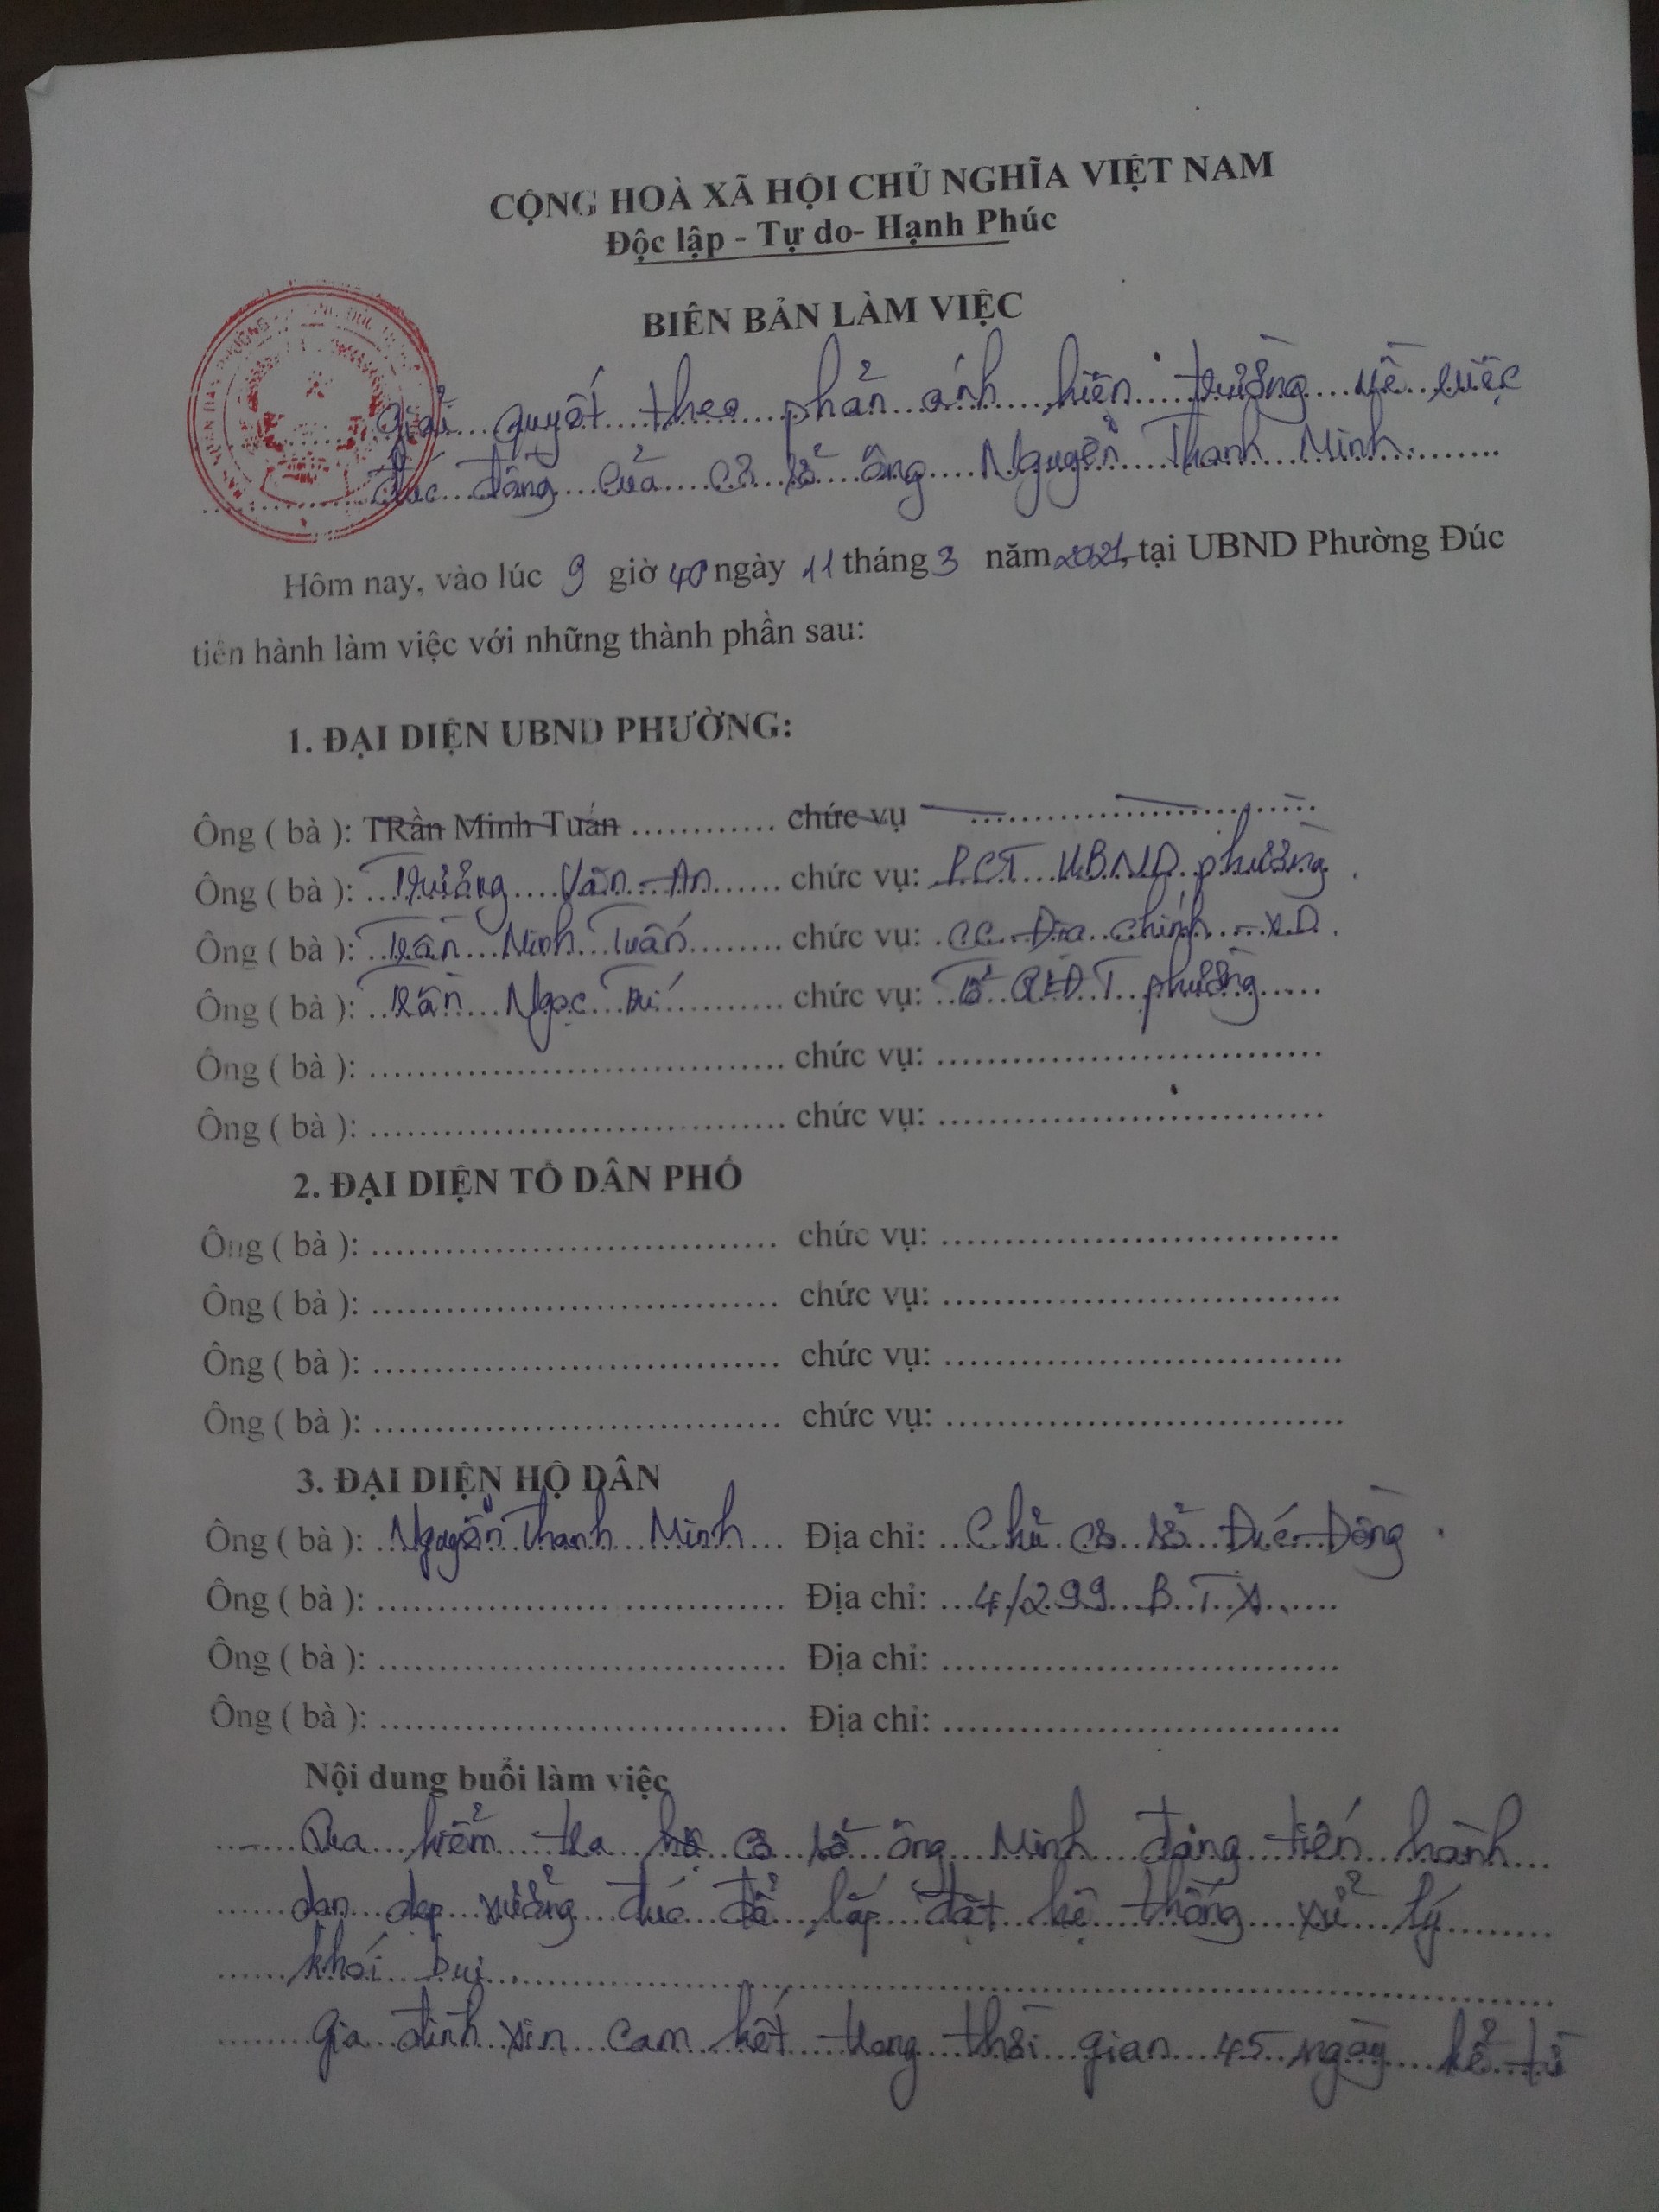 CỘNG HOÀ XÃ HỘI CHỦ NGHĨA VIỆT NAM
Độc lập - Tự do- Hạnh Phúc
BIÊN BẢN LÀM VIỆC
Giải quyết theo phản ánh hiện trường về việc
đúc đồng của cơ sở ông Nguyễn Thanh Minh
Hôm nay, vào lúc 9 giờ 40 ngày 11 tháng 3 năm 2021, tại UBND Phường Đúc
tiến hành làm việc với những thành phần sau:
1. ĐẠI DIỆN UBND PHƯỜNG:
Ông ( bà ): TRần Minh Tuấn ............. chức vụ ..............................
Ông ( bà ): Trương Văn An ...... chức vụ: PCT UBND phường
Ông ( bà ): Trần Minh Tuấn ........ chức vụ: CC Địa chính - XD
Ông ( bà ): Trần Ngọc Trí ......... chức vụ: Tổ QLĐT phường .....
Ông ( bà ): .................................. chức vụ: ................................
Ông ( bà ): .................................. chức vụ: ................................
2. ĐẠI DIỆN TỔ DÂN PHỐ
Ông ( bà ): ................................. chức vụ: .................................
Ông ( bà ): ................................. chức vụ: .................................
Ông ( bà ): ................................. chức vụ: .................................
Ông ( bà ): ................................. chức vụ: .................................
3. ĐẠI DIỆN HỘ DÂN
Ông ( bà ): Nguyễn Thanh Minh ... Địa chỉ: Chủ cơ sở Đúc Đồng
Ông ( bà ): ................................. Địa chỉ: 4/299 B.T.X ......
Ông ( bà ): ................................. Địa chỉ: .................................
Ông ( bà ): ................................. Địa chỉ: .................................
Nội dung buổi làm việc
Qua kiểm tra cơ sở ông Minh đang tiến hành
dọn dẹp xưởng đúc để lắp đặt hệ thống xử lý
khói bụi
Gia đình xin cam kết trong thời gian 45 ngày kể từ